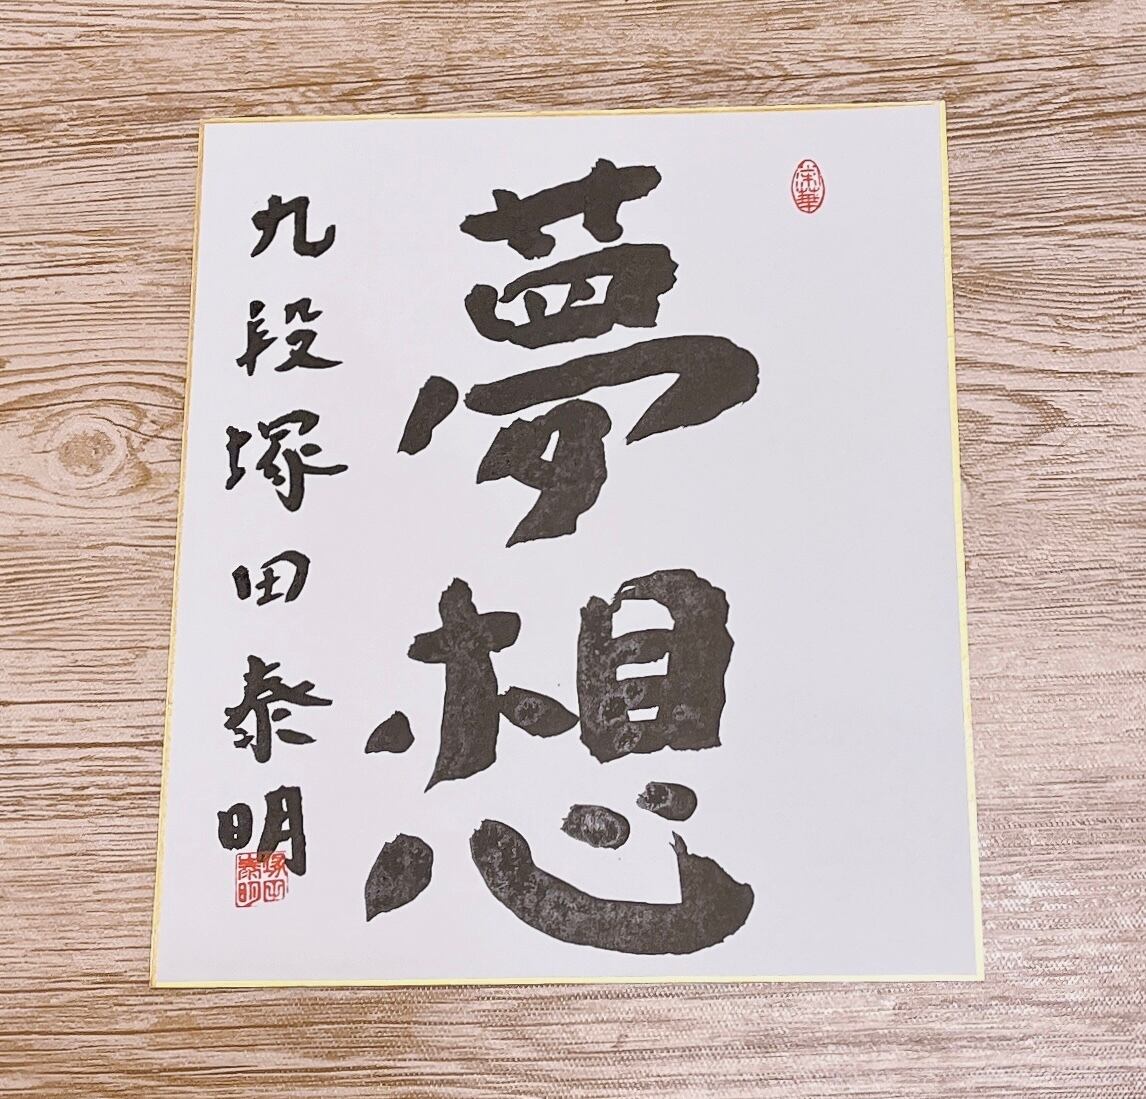 夢想
九段塚田泰明
塚田
泰明